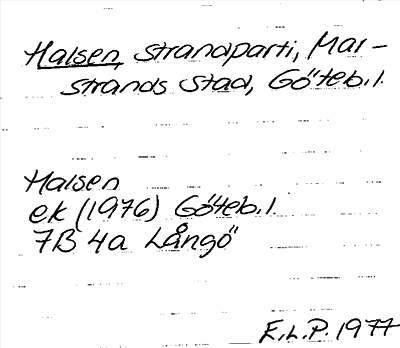 Halsen, strandparti, Mar-
strands stad, Göteb. l.
Halsen
ek (1976) Göteb. l.
7B 4a Långö
E.L.P. 1977